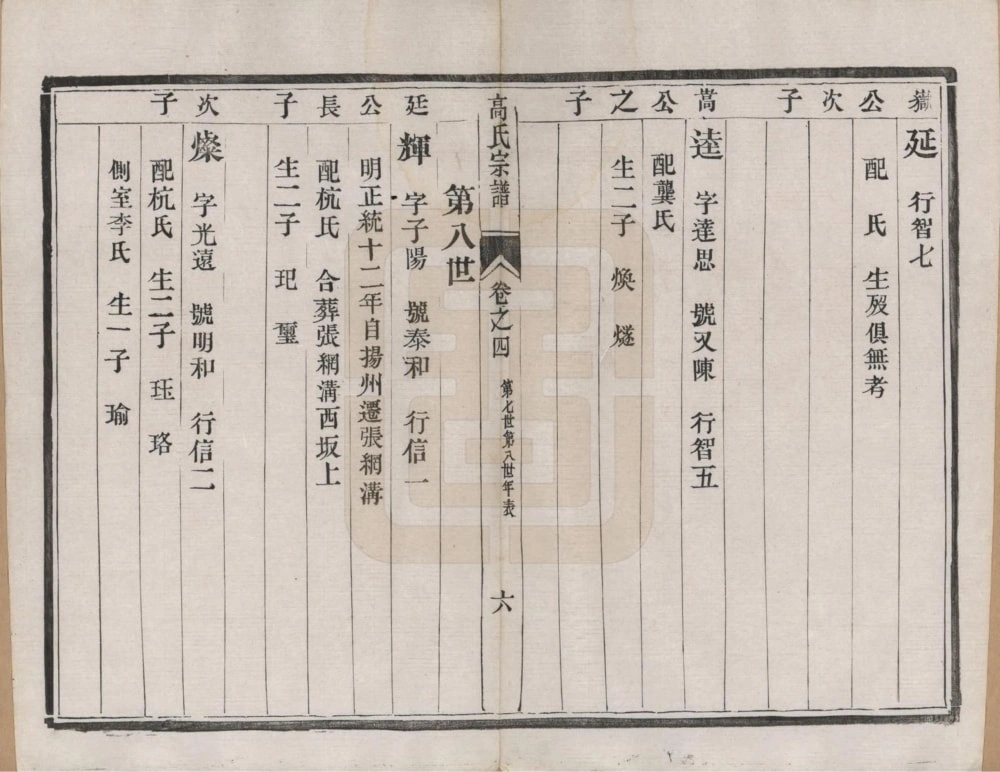 嶽公次子
延 行智七
配 氏 生殁俱無考
嵩公之子
逵 字達思 號又陳 行智五
配龔氏
生二子 煥 燧
高氏宗譜 卷之四 第七世第八世年表 六
第八世
廷公長子
輝 字子陽 號泰和 行信一
明正統十二年自揚州遷張網溝
配杭氏 合葬張網溝西坂上
生二子 玘 璽
次子
燦 字光遠 號明和 行信二
配杭氏 生二子 珏 珞
側室李氏 生一子 瑜